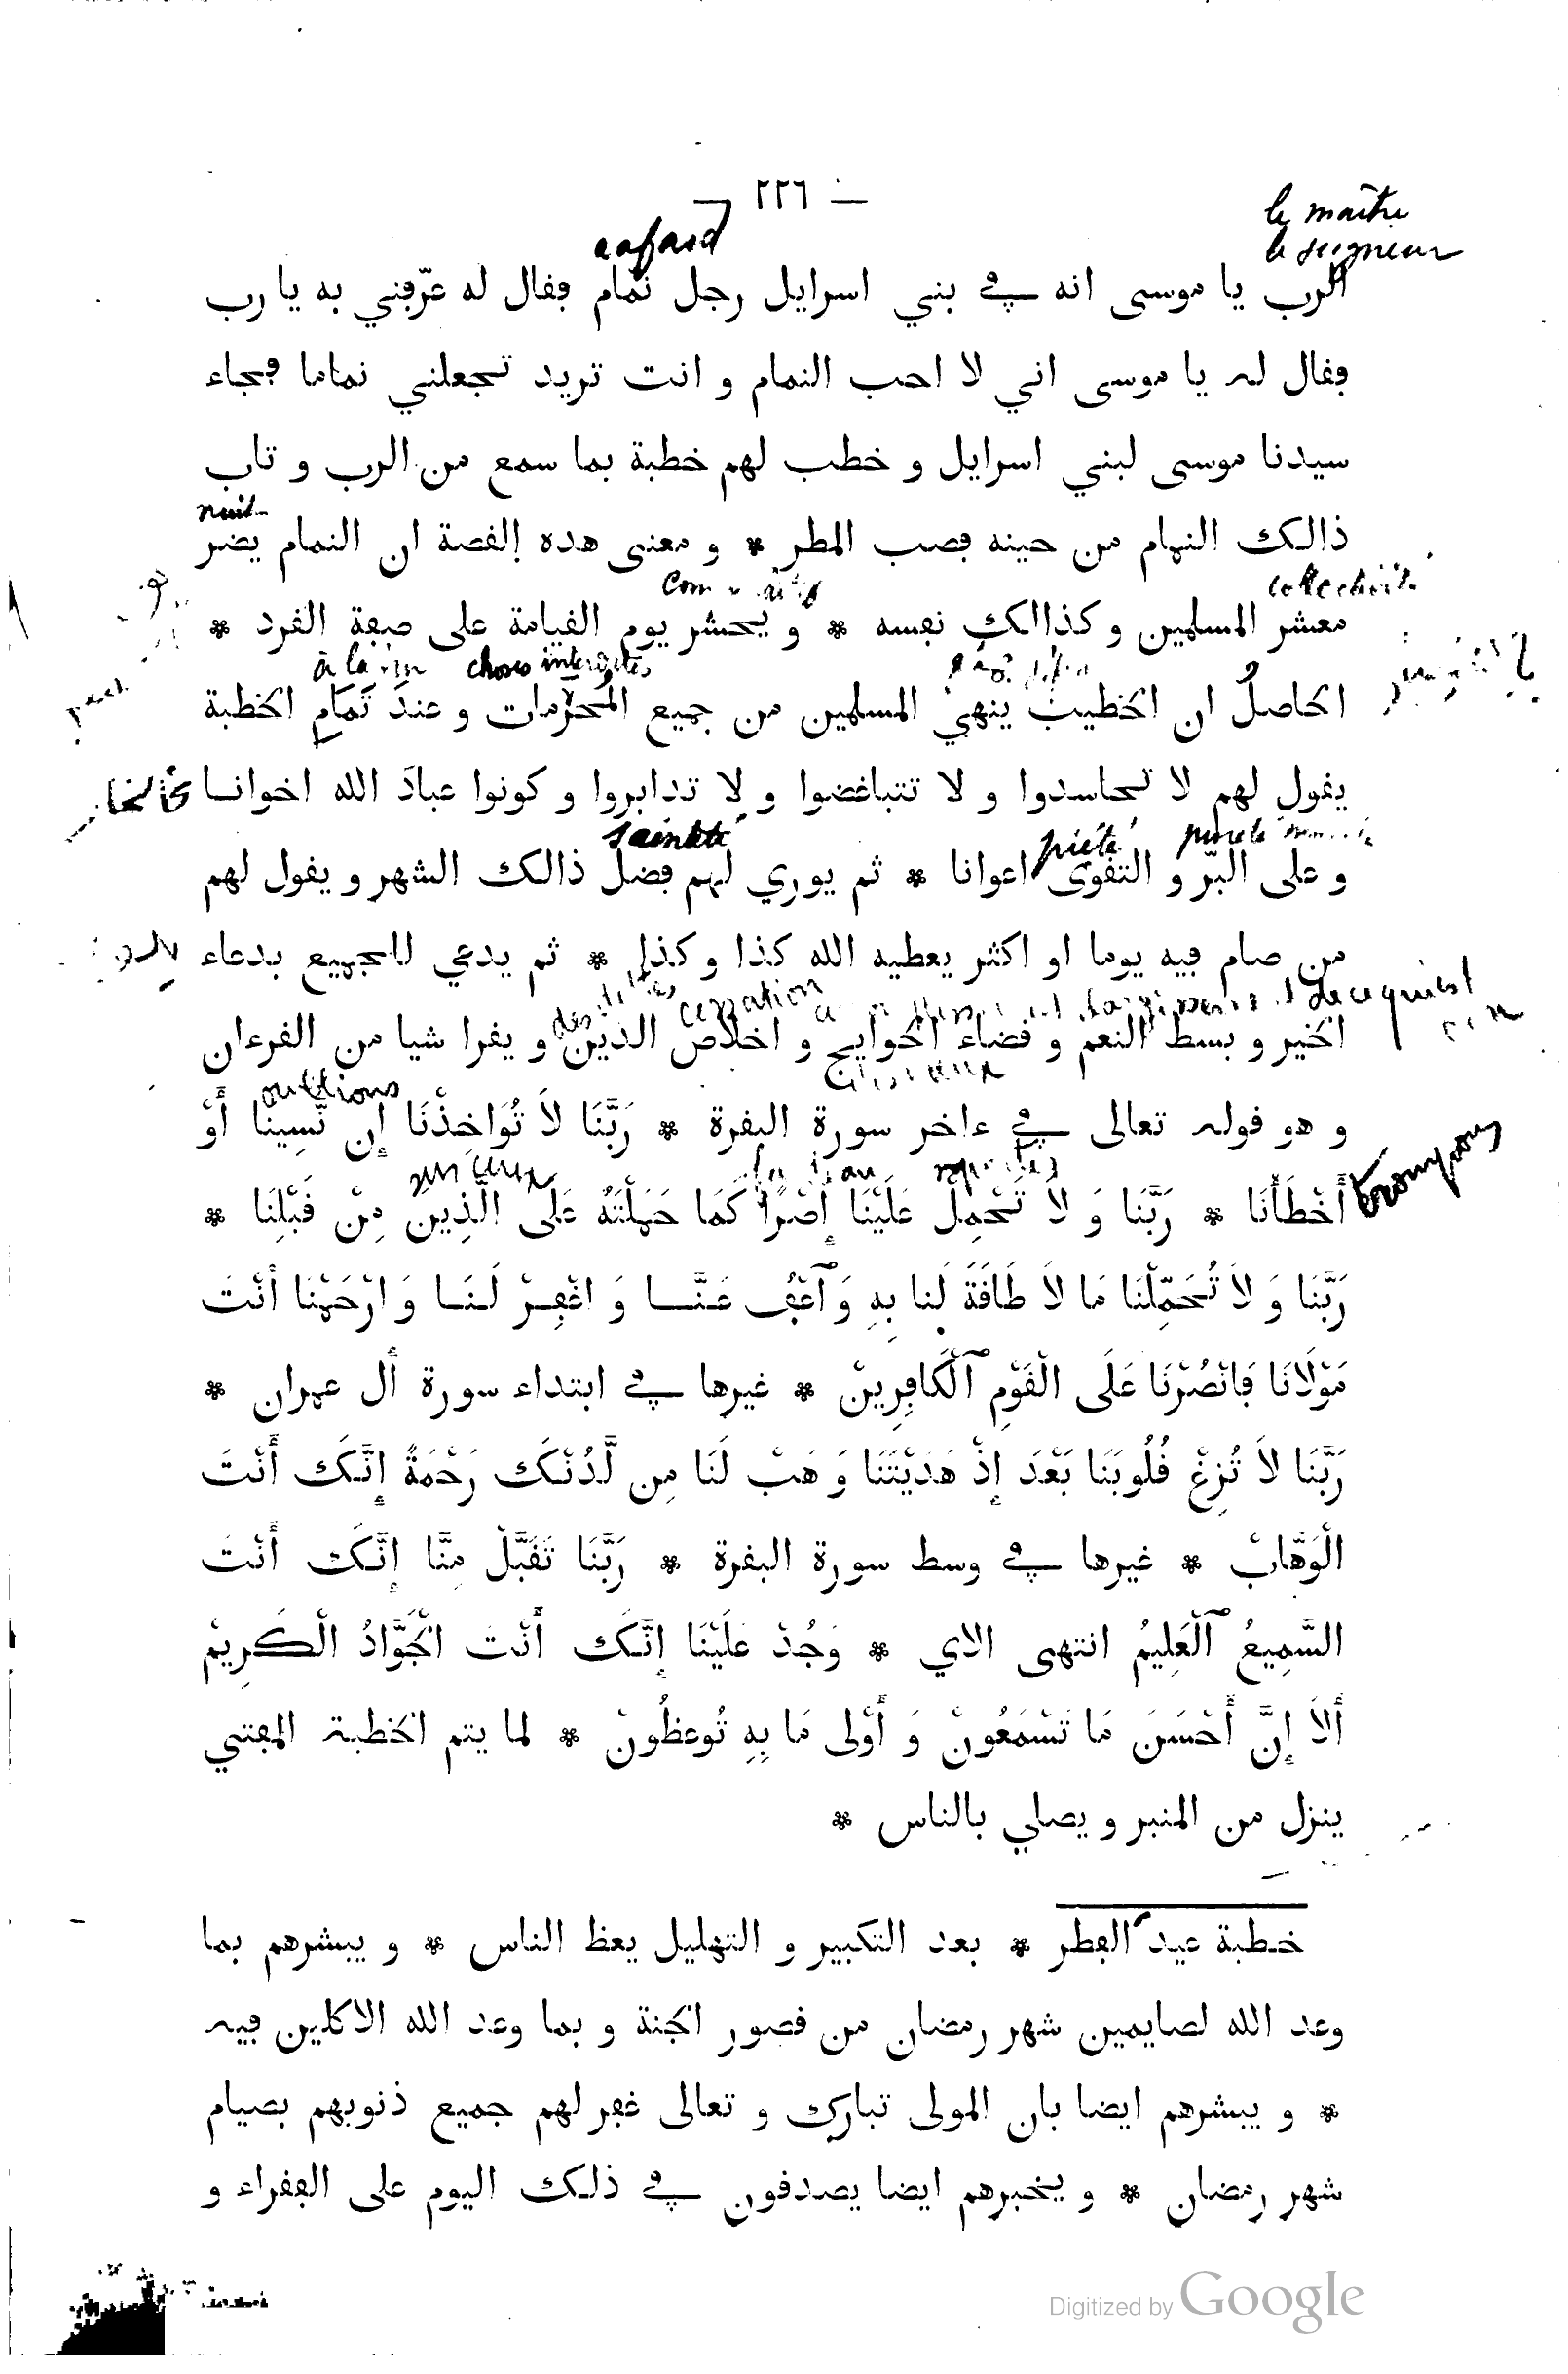 — ٢٢٦ —
le maître
le seigneur
cafard
الرب يا موسى انه في بني اسرايل رجل نمام فقال له عرّفني به يا رب
فقال له يا موسى اني لا احب النمام و انت تريد تجعلني نماما فجاء
سيدنا موسى لبني اسرايل و خطب لهم خطبة بما سمع من الرب و تاب
nuit
ذالك النمام من حينه فصب المطر * و معنى هده القصة ان النمام يضر
معشر المسلمين و كذالك نفسه * و يحشر يوم القيامة على صفة القرد *
à la fin choses interdites
الحاصلُ ان الخطيب ينهى المسلمين من جميع المُحَرَّمات و عندَ تَمَامِ الخطبة
يقول لهم لا تحاسدوا و لا تتباغضوا و لا تدابروا و كونوا عبادَ الله اخوانا
sainteté piété
و على البرّ و التقوى اعوانا * ثم يوري لهم فضل ذالك الشهر و يقول لهم
من صام فيه يوما او اكثر يعطيه الله كذا و كذا * ثم يدعي للجميع بدعاء
cessation
الخير و بسط النعم و قضاء الحوايج و اخلاص الدين و يقرا شيا من القرءان
oublions
و هو قوله تعالى في ءاخر سورة البقرة * رَبَّنَا لاَ تُوَاخِذْنَا إِن نَّسِينَا أَوْ
sur ceux
trompons
أَخْطَأْنَا * رَبَّنَا وَ لاَ تَحْمِلْ عَلَيْنَا إِصْرًا كَمَا حَمَلْتَهُ عَلَى الَّذِينَ مِنْ قَبْلِنَا *
رَبَّنَا وَ لاَ تُحَمِّلْنَا مَا لاَ طَاقَةَ لَنا بِهِ وَ ٱعْفُ عَنَّا وَ اغْفِرْ لَنَا وَ ارْحَمْنَا أَنْتَ
مَوْلَانَا فَانْصُرْنَا عَلَى الْقَوْمِ ٱلْكَافِرِينْ * غيرها في ابتداء سورة أل عمران *
رَبَّنَا لاَ تُزِغْ قُلُوبَنَا بَعْدَ إِذْ هَدَيْتَنَا وَ هَبْ لَنَا مِن لَّدُنْكَ رَحْمَةً إِنَّكَ أَنْتَ
الْوَهَّابْ * غيرها في وسط سورة البقرة * رَبَّنَا تَقَبَّلْ مِنَّا إِنَّكَ أَنْتَ
السَّمِيعُ ٱلْعَلِيمُ انتهى الاي * وَجُدْ عَلَيْنَا إِنَّكَ أَنْتَ الْجَوَّادُ الْكَرِيمْ
أَلاَ إِنَّ أَحْسَنَ مَا تَسْمَعُونْ وَ أَوْلى مَا بِهِ تُوعظُونْ * لما يتم الخطبة المفتي
ينزل من المنبر و يصلي بالناس *
خطبة عيد الفطر * بعد التكبير و التهليل يعظ الناس * و يبشرهم بما
وعد الله لصايمين شهر رمضان من قصور الجنة و بما وعد الله الاكلين فيه
* و يبشرهم ايضا بان المولى تبارك و تعالى غفر لهم جميع ذنوبهم بصيام
شهر رمضان * و يخبرهم ايضا يصدقون في ذلك اليوم على الفقراء و
Digitized by Google